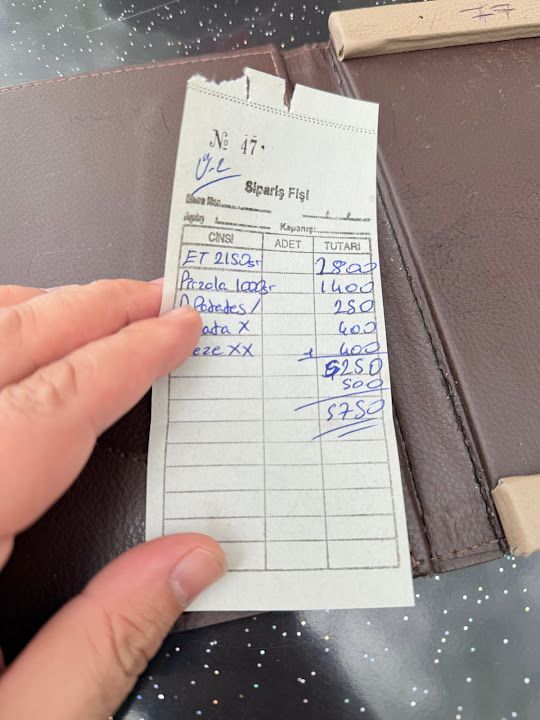 77
№ 47.
Sipariş Fişi
Kapanış:
CİNSİ ADET TUTARI
ET 2150gr 2800
Pirzola 1000gr 1400
Patates / 250
ata X 400
eze XX + 400
5250
500
5750